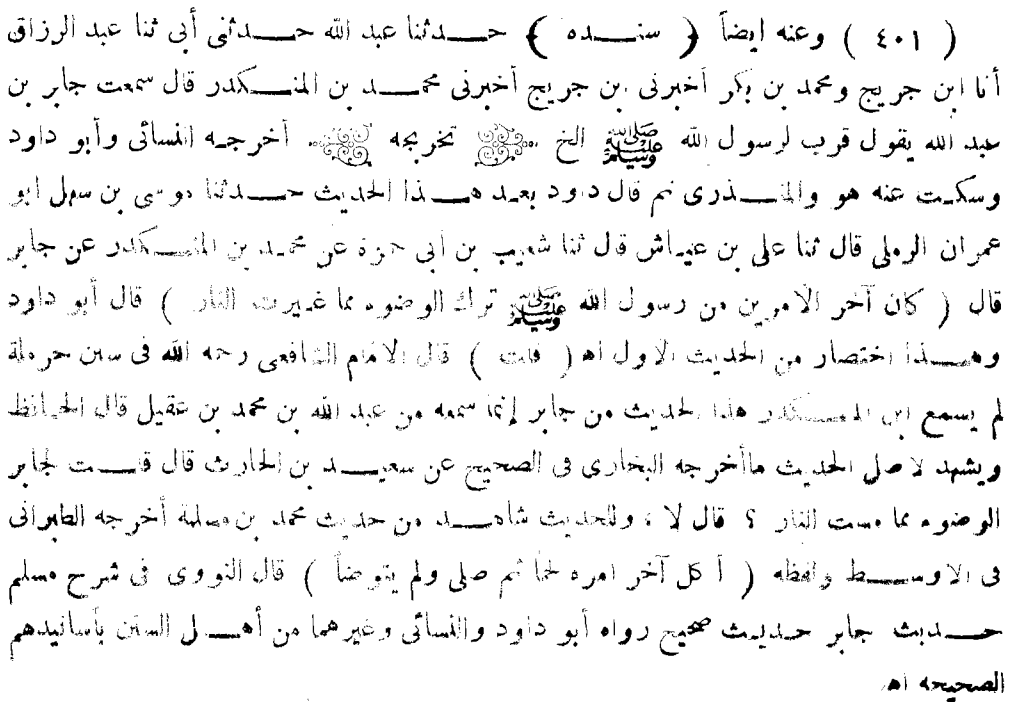 ( ٤٠١ ) وعنه ايضاً { سنده } حدثنا عبد الله حدثنى أبى ثنا عبد الرزاق
أنا ابن جريج ومحمد بن بكر أخبرنى ابن جريج أخبرنى محمد بن المنكدر قال سمعت جابر بن
عبد الله يقول قرب لرسول الله ﷺ الخ تخريجه أخرجه النسائى وأبو داود
وسكت عنه هو والمنذرى ثم قال داود بعد هذا الحديث حدثنا موسى بن سهل ابو
عمران الرملى قال ثنا على بن عياش قال ثنا شعيب بن أبى حمزة عن محمد بن المنكدر عن جابر
قال ( كان آخر الأمرين من رسول الله ﷺ ترك الوضوء مما غيرت النار ) قال أبو داود
وهذا اختصار من الحديث الاول اه ( قلت ) قال الامام الشافعى رحمه الله فى سنن حرملة
لم يسمع ابن المنكدر هذا الحديث من جابر إنما سمعه من عبد الله بن محمد بن عقيل قال الحافظ
ويشهد لاصل الحديث ماأخرجه البخارى فى الصحيح عن سعيد بن الحارث قال قلت لجابر
الوضوء مما مست النار ؟ قال لا ، وللحديث شاهد من حديث محمد بن مسلمة أخرجه الطبرانى
فى الاوسط ولفظه ( أكل آخر امره لحما ثم صلى ولم يتوضأ ) قال النووى فى شرح مسلم
حديث جابر حديث صحيح رواه أبو داود والنسائى وغيرهما من أهل السنن بأسانيدهم
الصحيحه اه